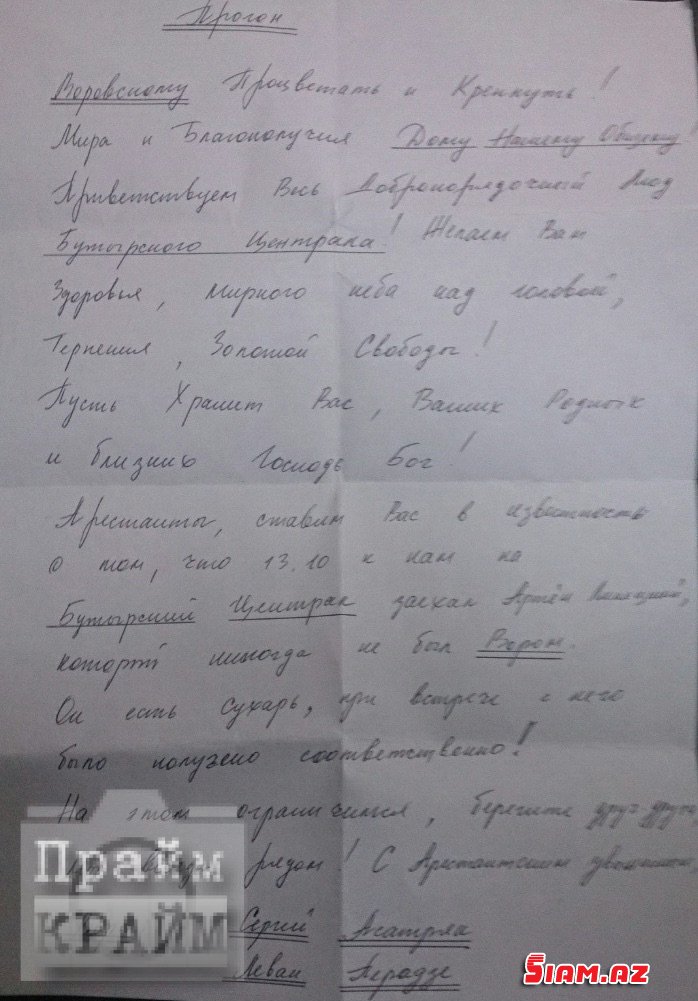 Прогон
Воровскому Процветать и Крепнуть!
Мира и Благополучия Дому Нашему Общему
Приветствуем Весь Добропорядочный Люд
Бутырского Централа! Желаем Вам
Здоровья, мирного неба над головой,
Терпения, Золотой Свободы!
Пусть Хранит Вас, Ваших Родных
и близких Господь Бог!
Арестанты, ставим Вас в известность
о том, что 13.10 к нам на
Бутырский Централ заехал Артём
который никогда не был Вором.
Он есть сухарь, при встрече с него
было получено соответственно!
На этом ограничимся, берегите друг друга,
рядом! С Арестантским уважением,
Сергий Асатрян
Леван
Прайм
КРАЙМ
SIAM.AZ